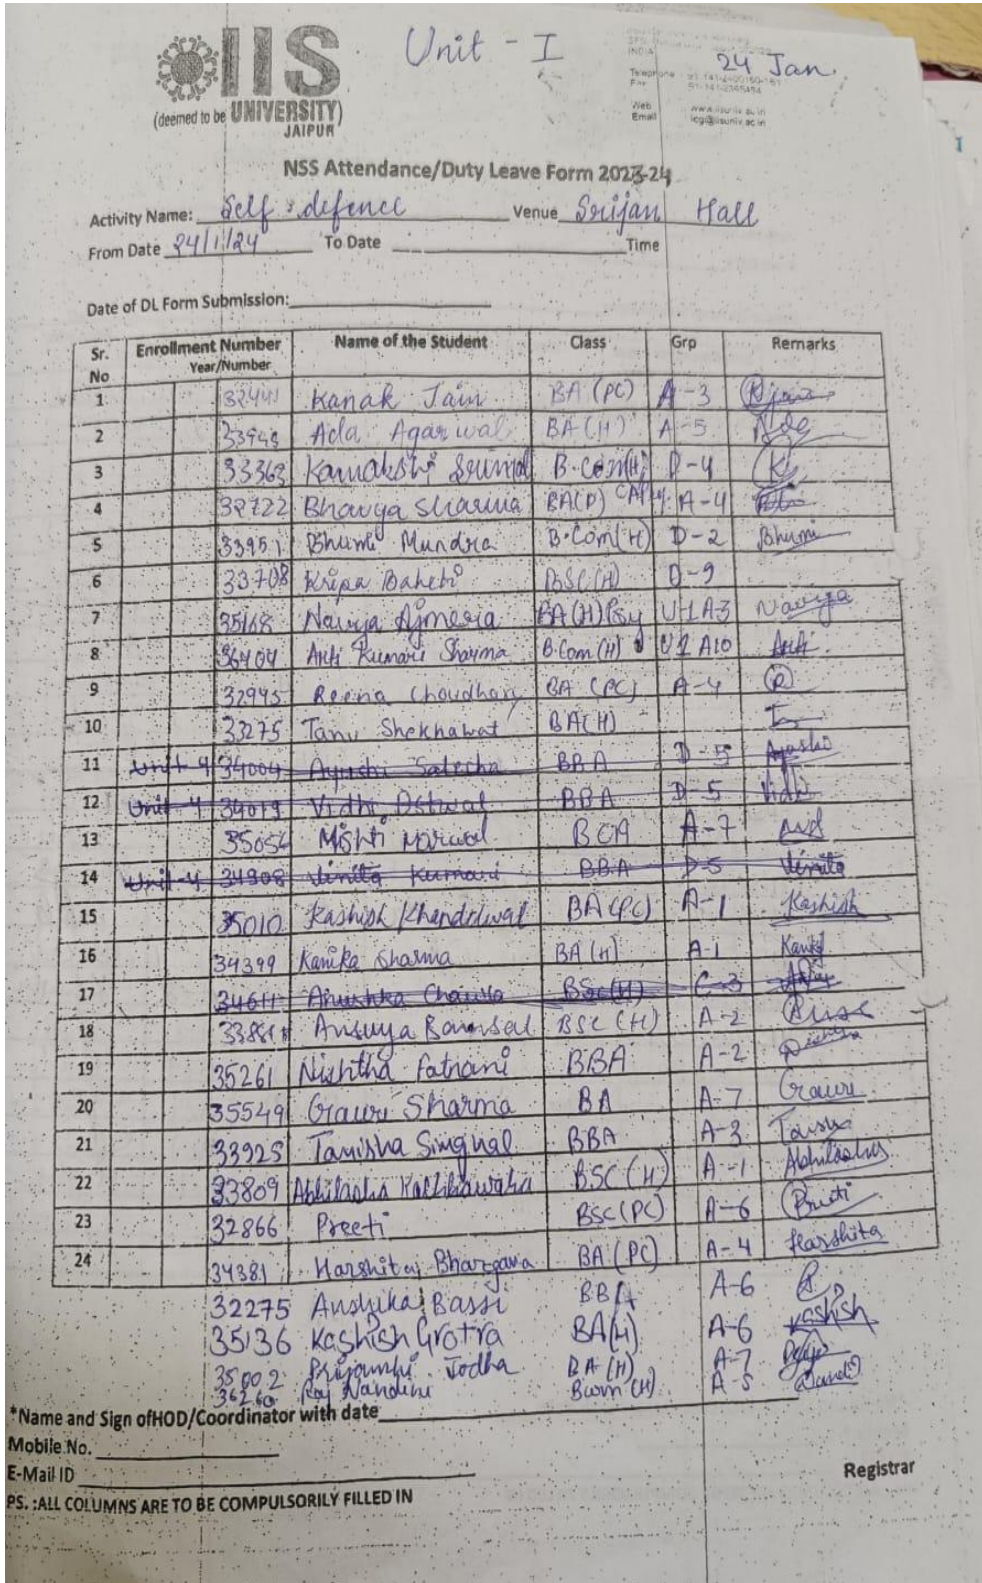 IIS
Unit - I
24 Jan.
(deemed to be UNIVERSITY)
JAIPUR
INDIA
Telephone
Fax
Web www.iisuniv.ac.in
Email icg@iisuniv.ac.in
NSS Attendance/Duty Leave Form 2023-24
Activity Name: Self defence Venue Srijan Hall
From Date 24/1/24 To Date Time
Date of DL Form Submission:
Sr. No Enrollment Number Year/Number Name of the Student Class Grp Remarks
1 32441 Kanak Jain BA (PC) A-3
2 33945 Ada Agarwal BA(H) A-5
3 33363 Kamakshi B.Com(H) D-4
4 32722 Bhavya Sharma BA(P) A-4
5 33951 Bhumi Mundra B.Com(H) D-2 Bhumi
6 33708 Kripa Baheti BSC(H) D-9
7 35168 Navya Ajmera BA(H)Psy U1A3 Navya
8 36404 Arti Kumari Sharma B.Com(H) U1 A10 Arti
9 32945 Reena Choudhary BA (PC) A-4 R
10 33275 Tanu Shekhawat BA(H)
11 Unit-4 34004 Ayushi Salecha BBA D-5
12 Unit-4 34019 Vidhi Ostwal BBA D-5 Vidhi
13 35054 Mishti BCA A-7
14 Unit-4 34308 Vinita Kumari BBA D-5 Vinita
15 35010 Kashish Khandelwal BA(PC) A-1 Kashish
16 34399 Kanika Sharma BA(H) A-1
17 34611 Anushka Chawla BSc(H) C-3
18 33881 Ansuya Bansal BSC(H) A-2
19 35261 Nishtha Fatnani BBA A-2
20 35549 Gauri Sharma BA A-7 Gauri
21 33925 Tanisha Singhal BBA A-3
22 33809 Abhilasha BSC(H) A-1 Abhilasha
23 32866 Preeti BSC(PC) A-6 Preeti
24 34381 Harshita Bhargava BA(PC) A-4 Harshita
32275 Anshika Bassi BBA A-6
35136 Kashish Grotra BA(H) A-6 Kashish
35002 Priyanshi Jodha BA(H) A-7
36260 Raj Nandini Bcom(H) A-5
*Name and Sign ofHOD/Coordinator with date
Mobile No.
E-Mail ID
Registrar
PS. :ALL COLUMNS ARE TO BE COMPULSORILY FILLED IN